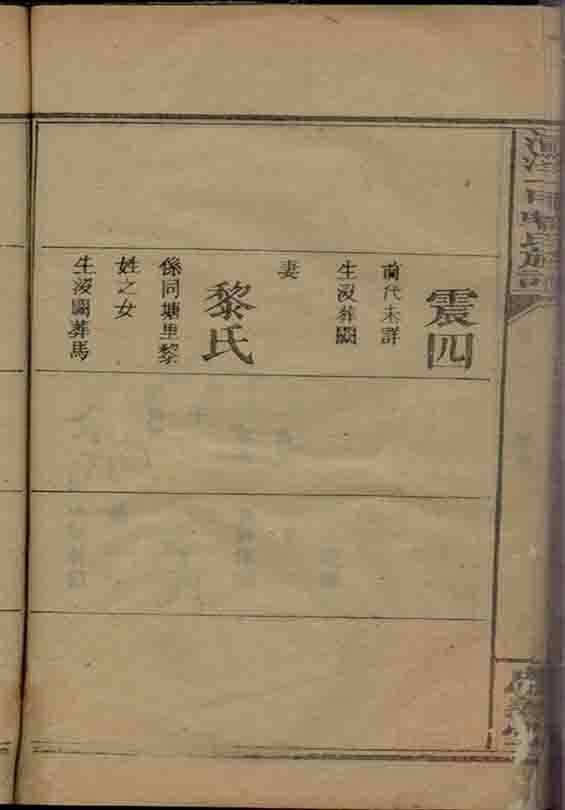 震四
前代未詳
生沒葬闕
妻
黎氏
係同塘里黎
姓之女
生沒闕葬馬